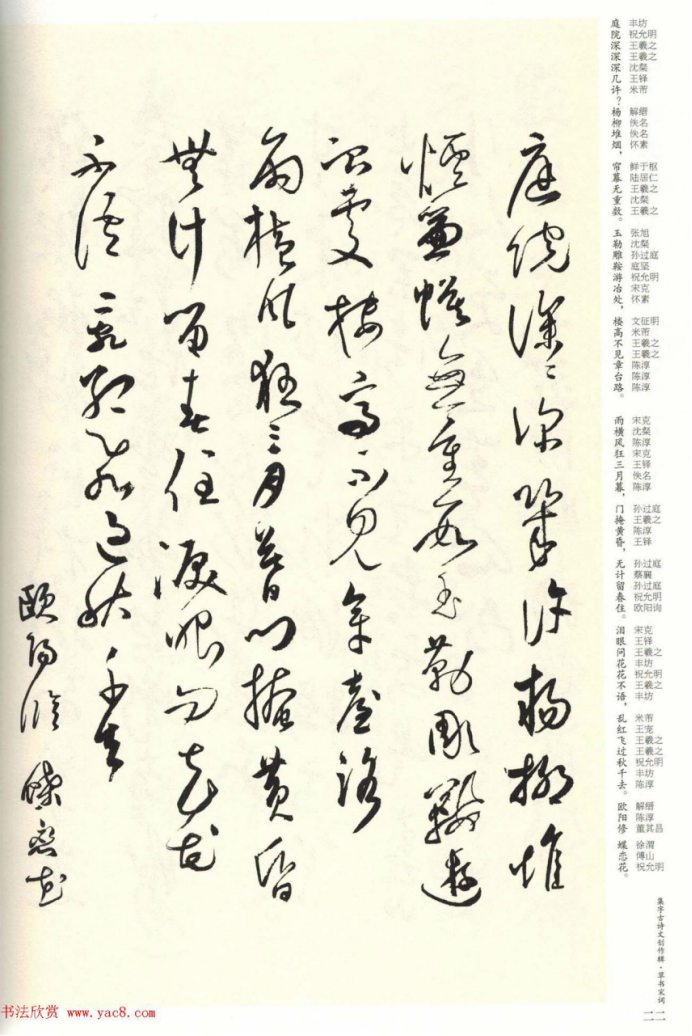 庭院深深深几许?杨柳堆烟,帘幕无重数。玉勒雕鞍游冶处,楼高不见章台路。
雨横风狂三月暮,门掩黄昏,无计留春住。泪眼问花花不语,乱红飞过秋千去。
欧阳修 蝶恋花。
丰坊
祝允明
王羲之
王羲之
沈粲
王铎
米芾
解缙
佚名
佚名
怀素
鲜于枢
陆居仁
王羲之
沈粲
王羲之
张旭
沈粲
孙过庭
庭坚
祝允明
宋克
怀素
文征明
米芾
王羲之
王羲之
陈淳
陈淳
陈淳
宋克
沈粲
陈淳
宋克
王铎
佚名
陈淳
孙过庭
王羲之
陈淳
王铎
孙过庭
蔡襄
孙过庭
祝允明
欧阳询
宋克
王铎
王羲之
丰坊
祝允明
王羲之
丰坊
米芾
王宠
王羲之
王羲之
祝允明
丰坊
陈淳
解缙
陈淳
董其昌
徐渭
傅山
祝允明
庭院深〻深幾許楊柳堆
煙簾幙無重數玉勒雕鞍遊
冶處樓高不見章臺路
雨橫風狂三月暮門掩黃昏
無計留春住淚眼問花花
不語亂紅飛過秋千去
歐陽修 蝶戀花
集字古诗文创作辑·草书宋词
二二
书法欣赏 www.yac8.com